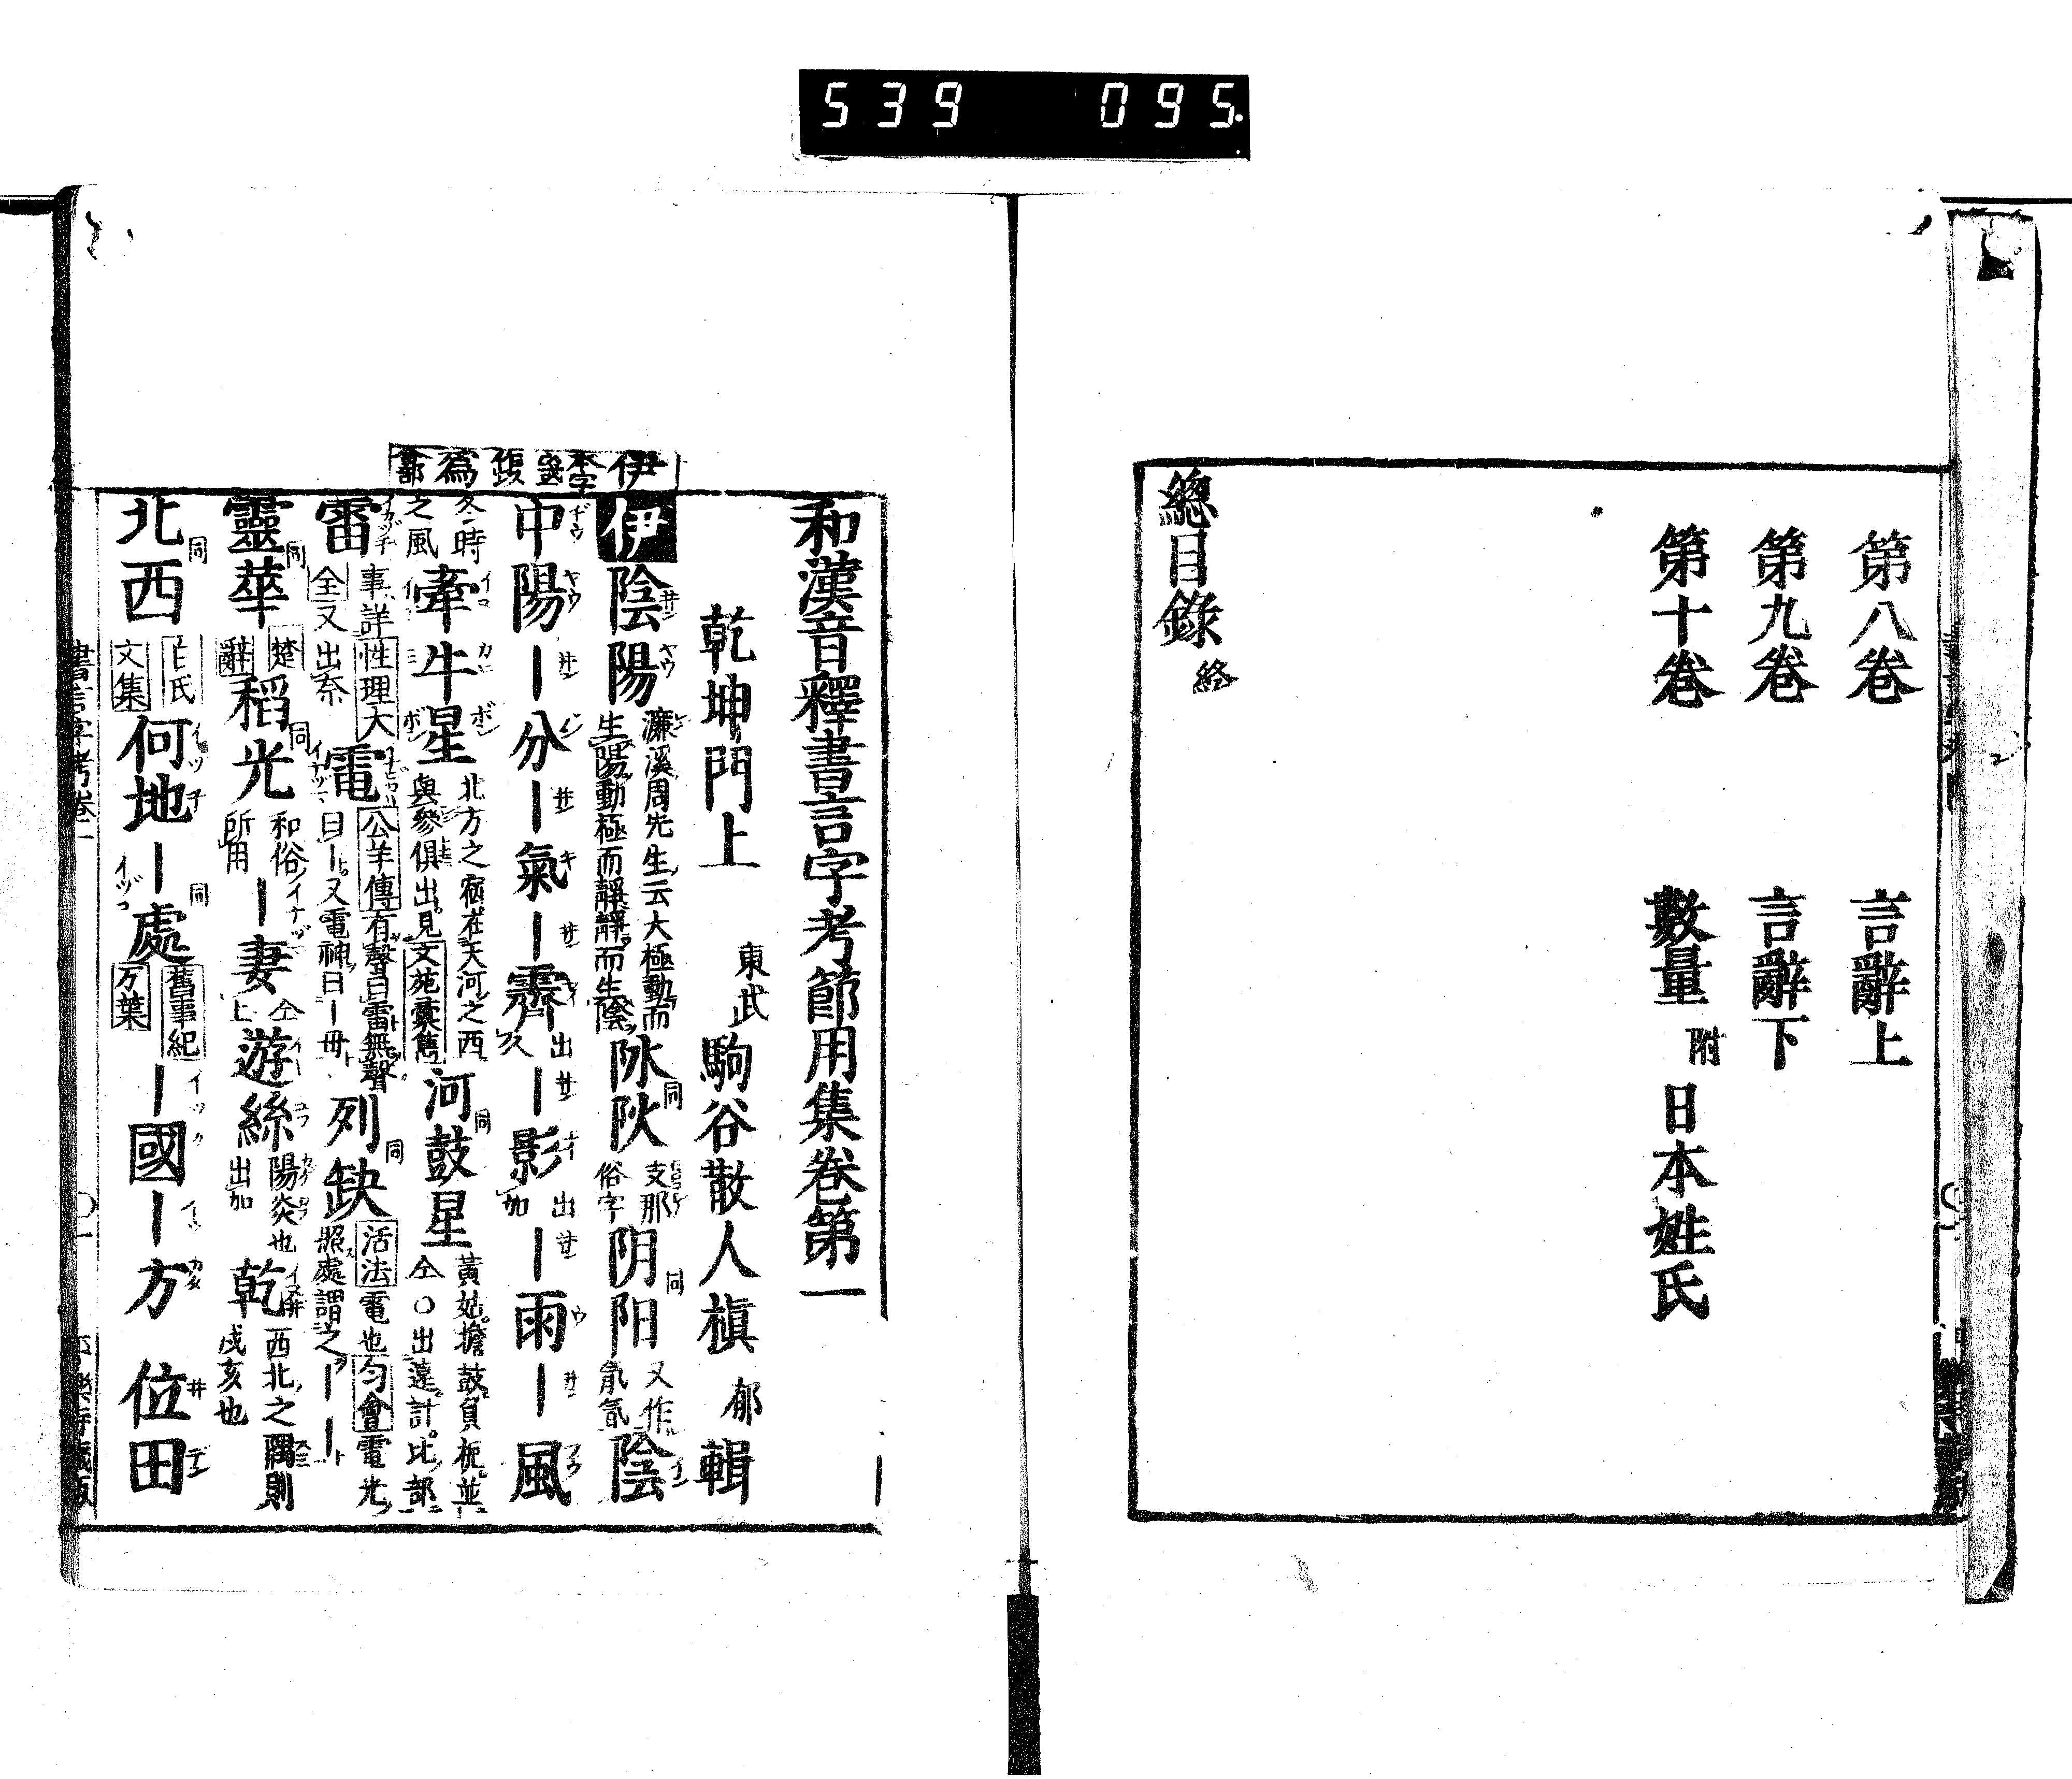 539 095
第八巻 言辭上
第九巻 言辭下
第十巻 數量 附 日本姓氏
總目錄 終
和漢音釋書言字考節用集巻第一
乾坤門上 東武 駒谷散人槇 郁 輯
伊 陰陽 濂溪周先生云大極動而生陽動極而靜靜而生陰 㲾炚 同 支那俗字 阴阳 同 又作 陰
中陽 ー分 ー氣 ー霽 出久 ー影 出加 ー雨 ー風
冬時之風 牽牛星 北方之宿在天河之西與參俱出見文苑彙雋 河鼓星 同 黃姑擔鼓負軛並仝○出遠計比部
雷 事詳性理大全又出奈 電 公羊傳有聲曰雷無聲曰ー又電神曰ー毋 列缺 同 活法電也勻會電光照處謂之ーー
靈華 同 楚辭 稻光 同 和俗所用 ー妻 仝上 遊絲 陽炎也出加 乾 西北之隅則戌亥也
北西 同 白氏文集 何地 ー處 同 舊事紀万葉 ー國 ー方 位田
書言字考巻一